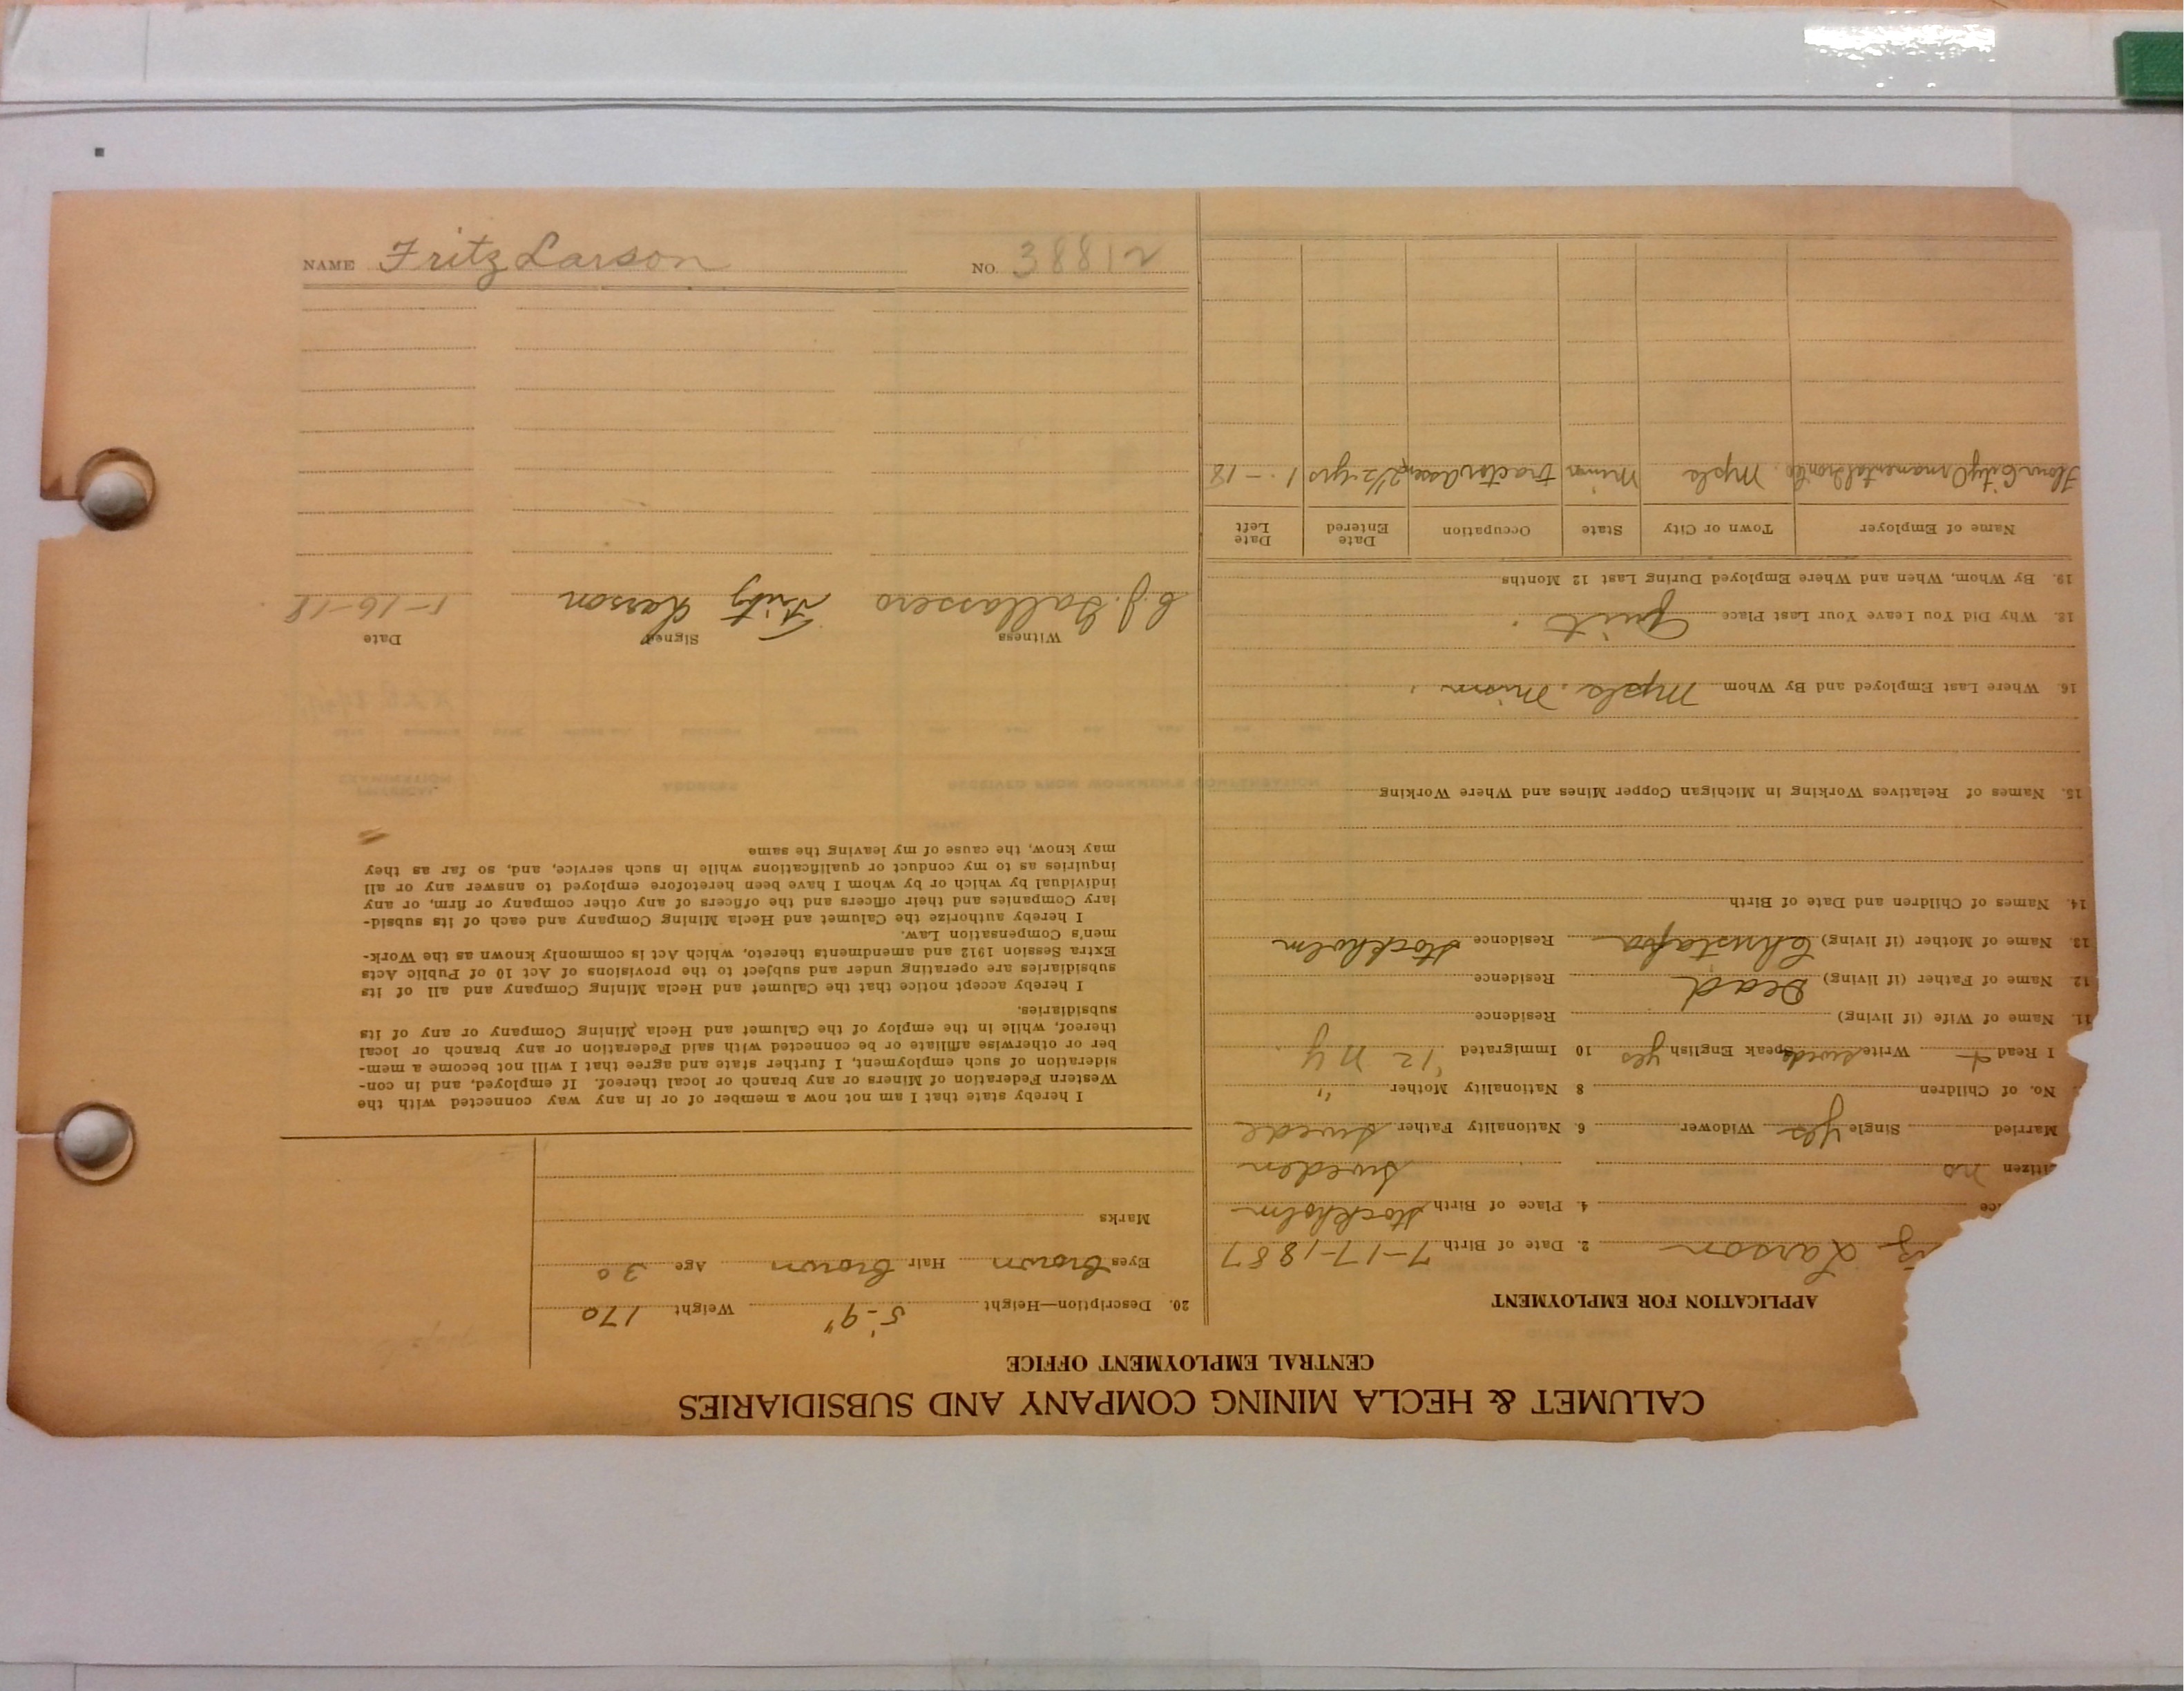 CALUMET & HECLA MINING COMPANY AND SUBSIDIARIES
CENTRAL EMPLOYMENT OFFICE
APPLICATION FOR EMPLOYMENT
Larson 2. Date of Birth 7-17-1887
4. Place of Birth Stockholm
itizen no Sweden
Married Single yes Widower 6. Nationality Father Swede
No. of Children 8 Nationality Mother "
I Read + Write Swede Speak English yes 10 Immigrated '12 NY
11. Name of Wife (if living) Residence
12. Name of Father (if living) Dead Residence
13. Name of Mother (if living) Residence Stockholm
14. Names of Children and Date of Birth
15. Names of Relatives Working in Michigan Copper Mines and Where Working
16. Where Last Employed and By Whom Mpls. Minn.
18. Why Did You Leave Your Last Place Quit.
19. By Whom, When and Where Employed During Last 12 Months
Name of Employer Town or City State Occupation Date Entered Date Left
Flour City Ornamental Iron Co. Mpls Minn tractor 2½ yrs 1 - 18
20. Description—Height 5'-9" Weight 170
Eyes Brown Hair Brown Age 30
Marks
I hereby state that I am not now a member of or in any way connected with the
Western Federation of Miners or any branch or local thereof. If employed, and in con-
sideration of such employment, I further state and agree that I will not become a mem-
ber or otherwise affiliate or be connected with said Federation or any branch or local
thereof, while in the employ of the Calumet and Hecla Mining Company or any of its
subsidiaries.
I hereby accept notice that the Calumet and Hecla Mining Company and all of its
subsidiaries are operating under and subject to the provisions of Act 10 of Public Acts
Extra Session 1912 and amendments thereto, which Act is commonly known as the Work-
men's Compensation Law.
I hereby authorize the Calumet and Hecla Mining Company and each of its subsid-
iary Companies and their officers and the officers of any other company or firm, or any
individual by which or by whom I have been heretofore employed to answer any or all
inquiries as to my conduct or qualifications while in such service, and, so far as they
may know, the cause of my leaving the same
Witness Signed Date
Fritz Larson 1-16-18
NAME Fritz Larson NO. 38812